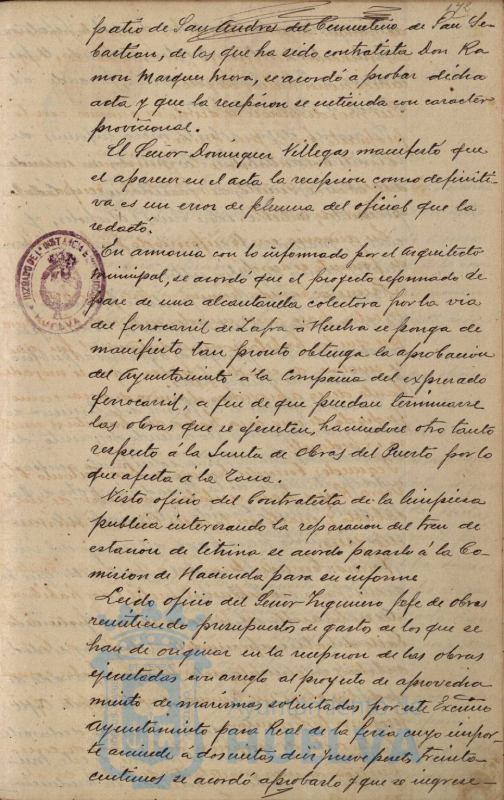 142
patio de San Andres del Cementerio de San Se-
bastian, de las que ha sido contratista Don Ra-
mon Marquez Mora, se acordó aprobar dicha
acta y que la recepcion se entienda con caracter
provicional.
El Señor Dominguez Villegas manifestó que
el aparecer en el acta la recepcion como definiti-
va es un error de pluma del oficial que la
redactó.
En armonia con lo informado por el Arquitecto
municipal, se acordó que el proyecto reformado de
pase de una alcantarilla colectora por la via
del ferrocarril de Zafra á Huelva se ponga de
manifiesto tan pronto obtenga la aprobacion
del Ayuntamiento á la Compañia del expresado
ferrocarril, a fin de que puedan terminarse
las obras que se ejecuten, haciendose otro tanto
respecto á la Junta de Obras del Puerto por lo
que afecta á la Zona.
Visto oficio del Contratista de la limpiesa
publica interesando la reparacion del tren de
estacion de letrina se acordó pasarlo á la Co-
mision de Hacienda para su informe
Leido oficio del Señor Ingeniero Jefe de obras
remitiendo presupuestos de gastos de los que se
han de originar en la recepcion de las obras
ejecutadas con arreglo al proyecto de aprovecha
miento de marismas solicitadas por este Excmo
Ayuntamiento para Real de la feria cuyo impor-
te asciende á doscientas diez y nueve pests treinta
centimos se acordó aprobarlo y que se ingrese-
JUZGADO DE 1ª INSTANCIA
HUELVA
HUELVA